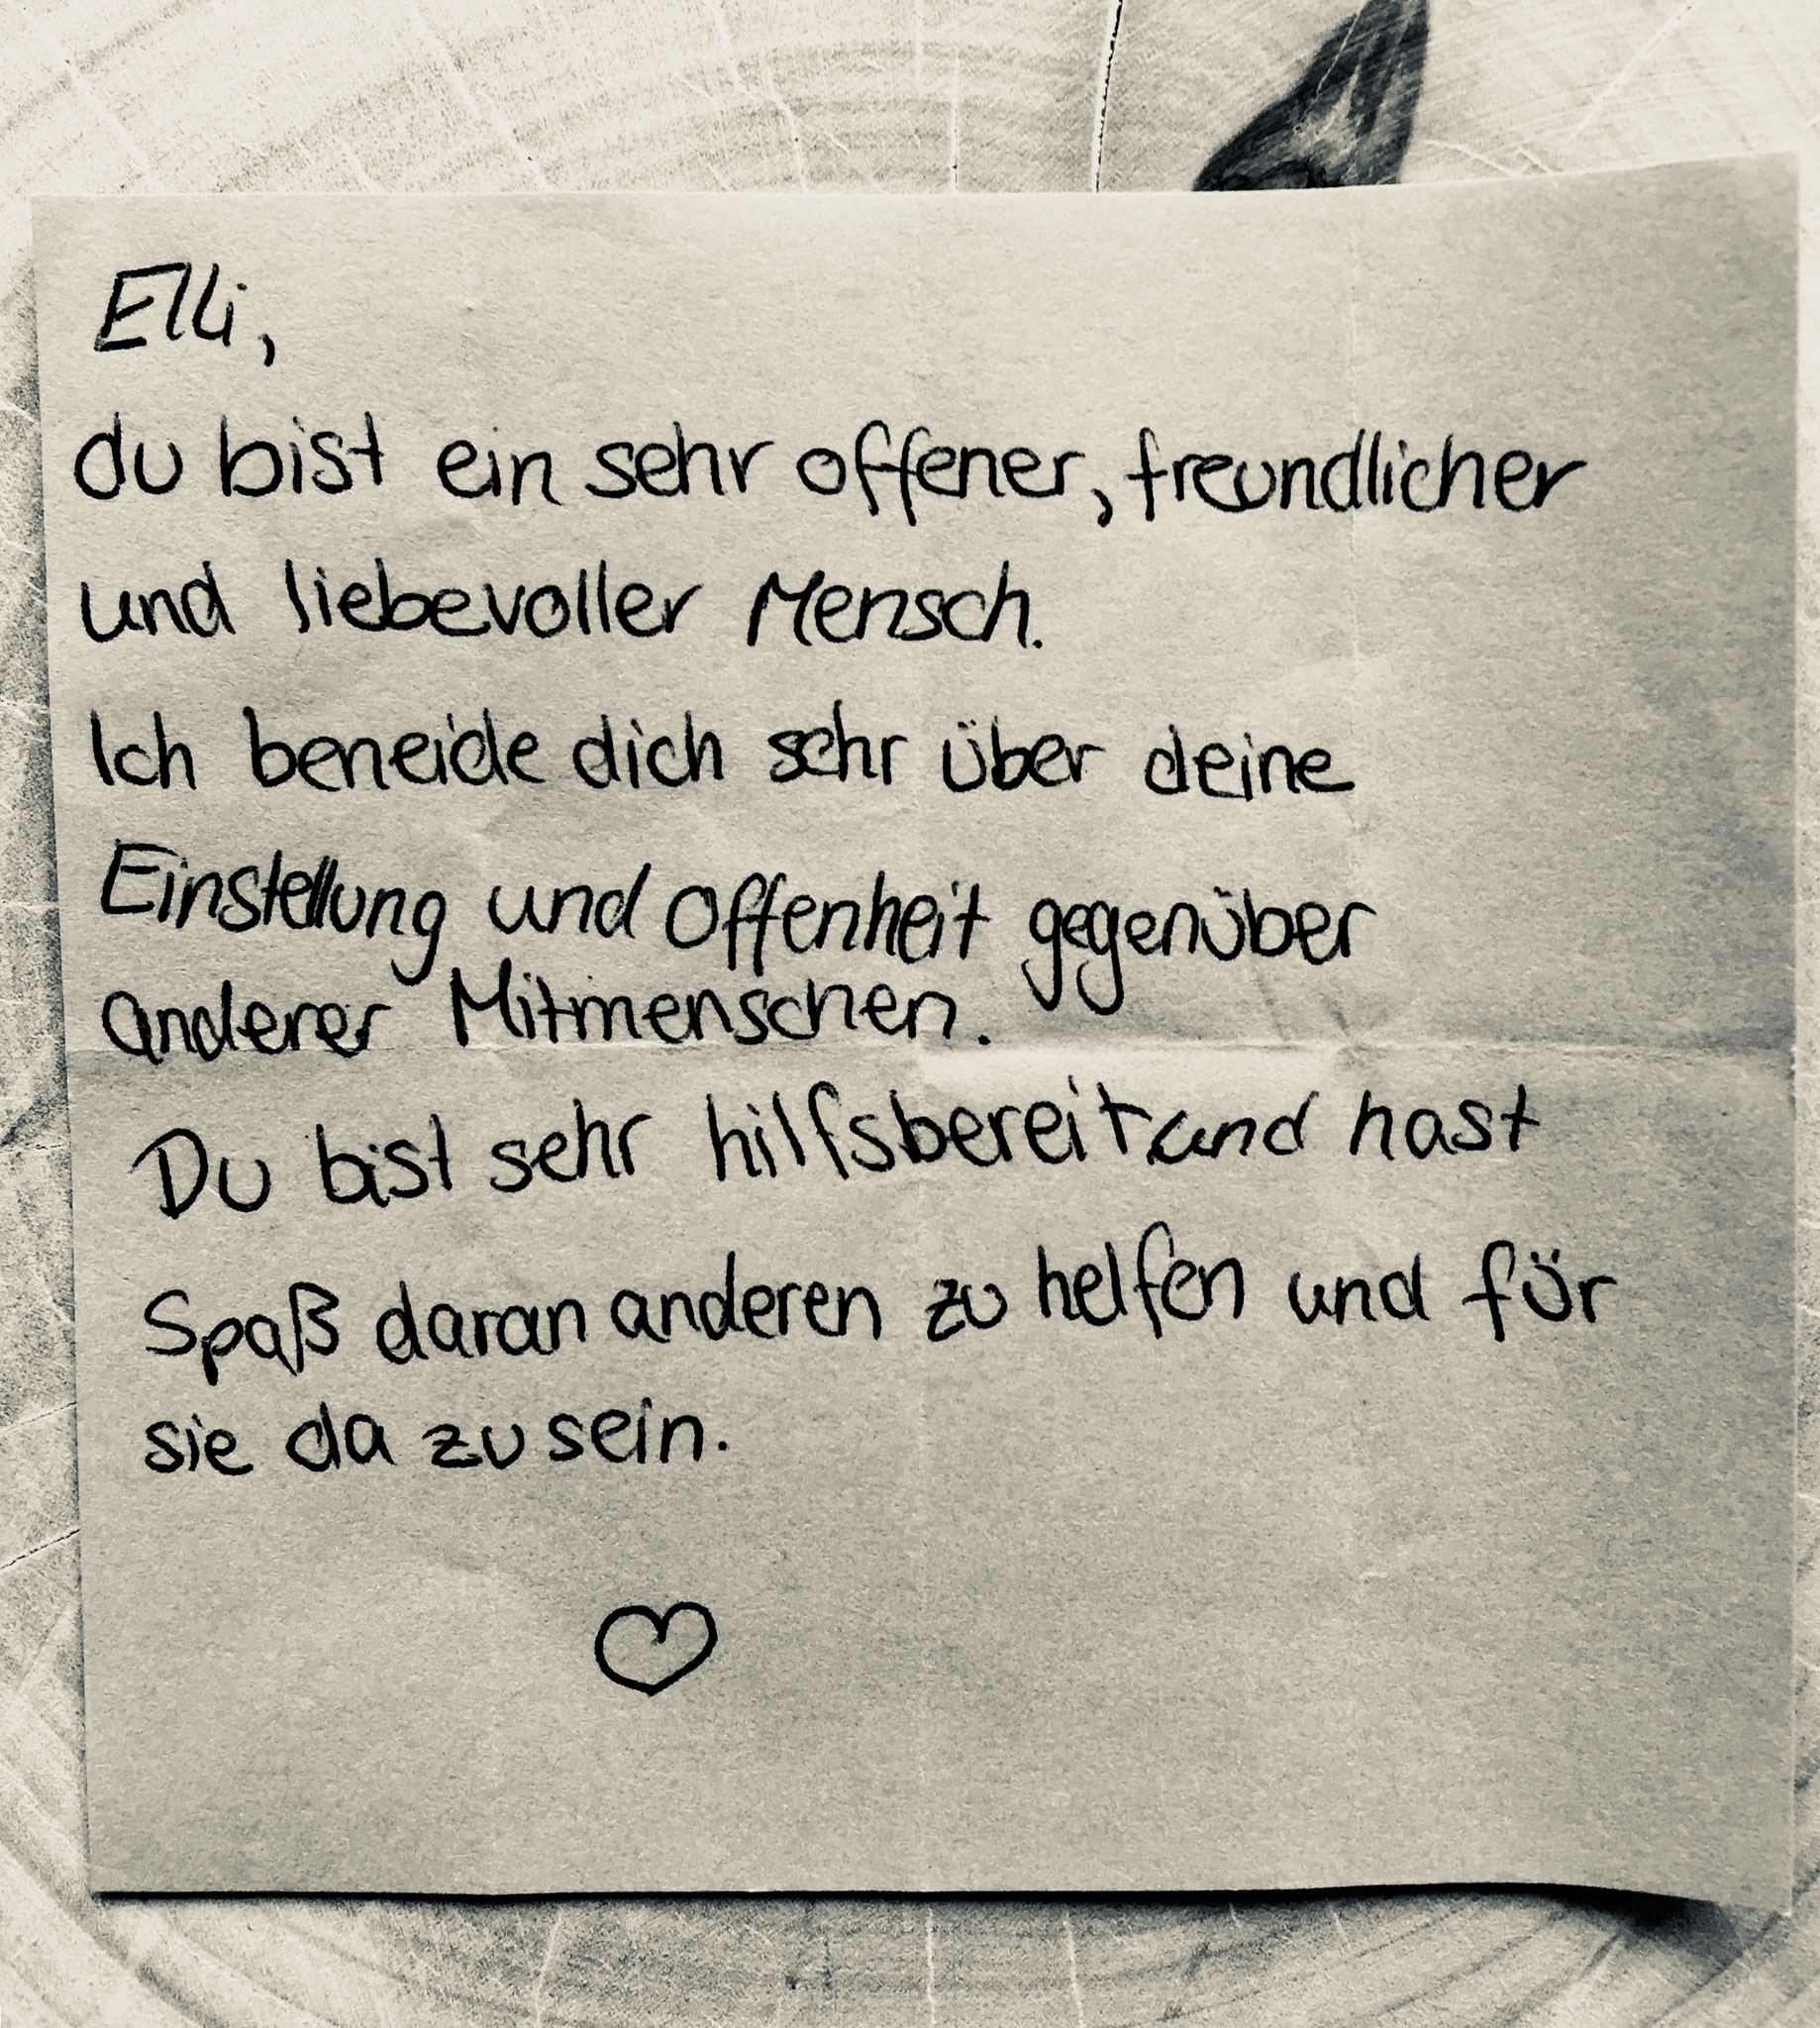 Elli,
du bist ein sehr offener, freundlicher
und liebevoller Mensch.
Ich beneide dich sehr über deine
Einstellung und Offenheit gegenüber
anderer Mitmenschen.
Du bist sehr hilfsbereit und hast
Spaß daran anderen zu helfen und für
sie da zu sein.